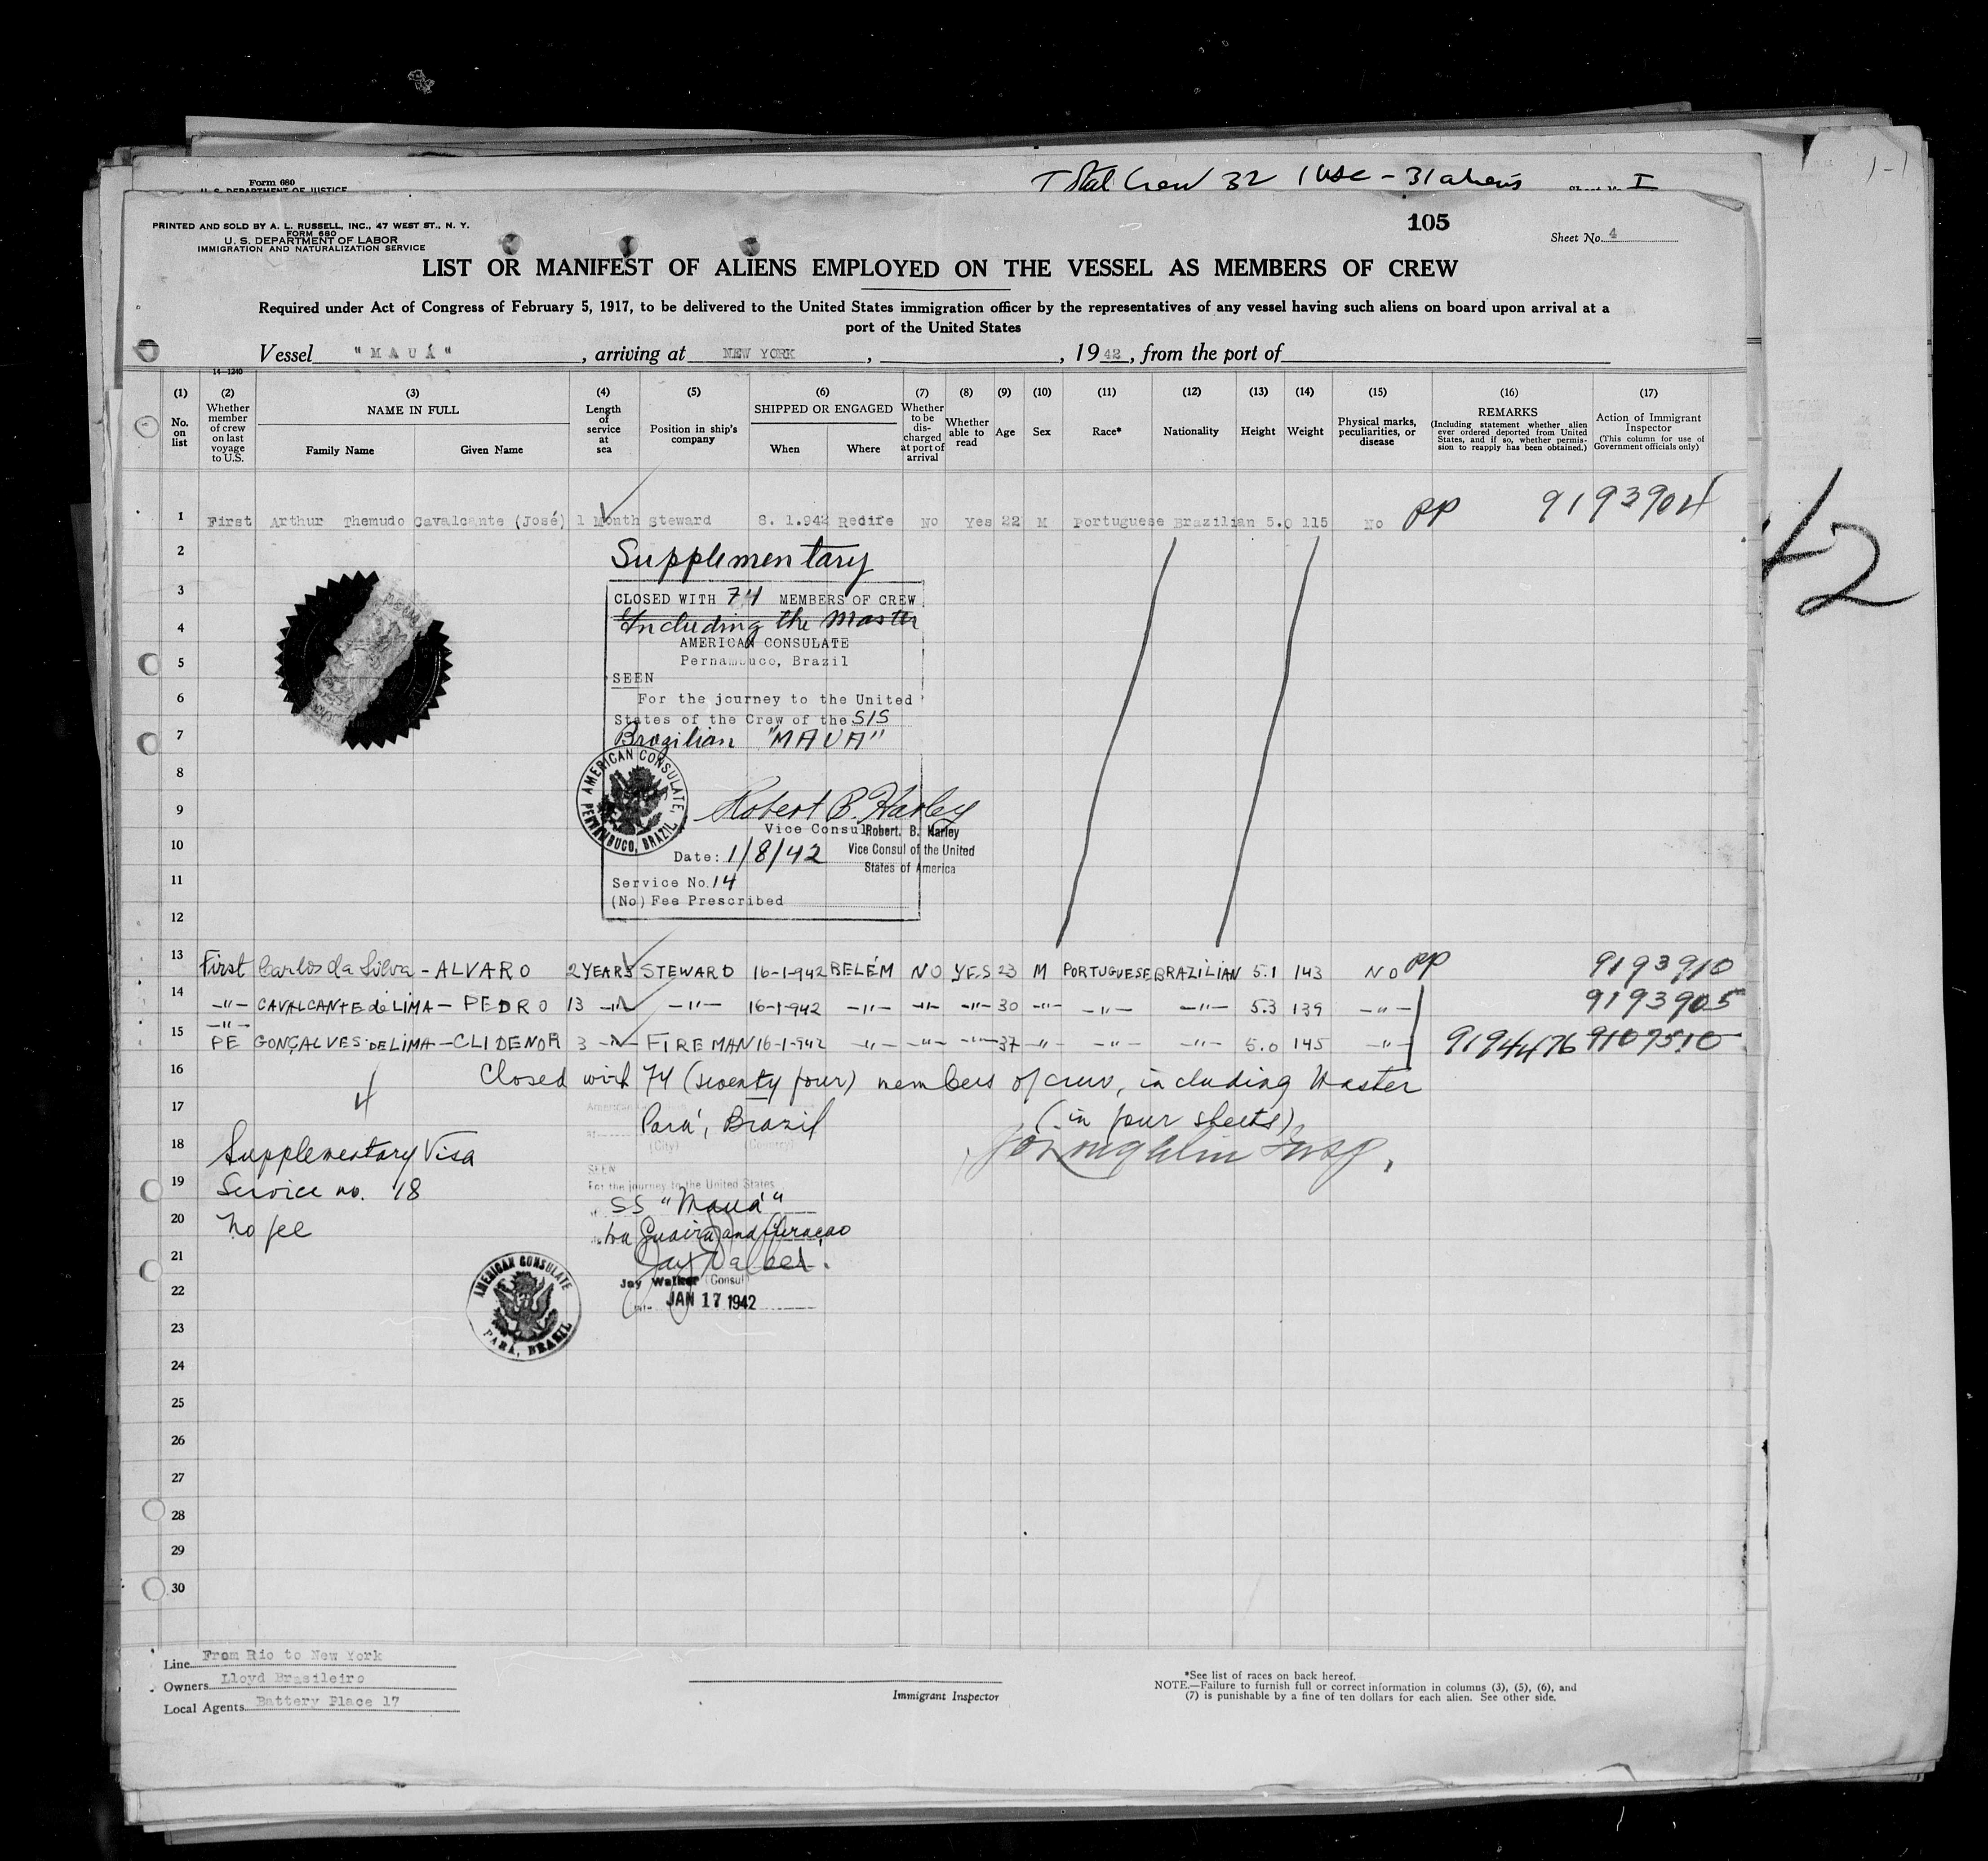 Form 680
U. S. DEPARTMENT OF JUSTICE
Total Crew 32 1 USC - 31 aliens
I
PRINTED AND SOLD BY A. L. RUSSELL, INC., 47 WEST ST., N. Y.
FORM 680
U. S. DEPARTMENT OF LABOR
IMMIGRATION AND NATURALIZATION SERVICE
105
Sheet No. 4
LIST OR MANIFEST OF ALIENS EMPLOYED ON THE VESSEL AS MEMBERS OF CREW
Required under Act of Congress of February 5, 1917, to be delivered to the United States immigration officer by the representatives of any vessel having such aliens on board upon arrival at a
port of the United States
Vessel "MAUÁ", arriving at NEW YORK, , 1942, from the port of
14—1240
(1) No. on list
(2) Whether member of crew on last voyage to U.S.
(3) NAME IN FULL
Family Name Given Name
(4) Length of service at sea
(5) Position in ship's company
(6) SHIPPED OR ENGAGED
When Where
(7) Whether to be discharged at port of arrival
(8) Whether able to read
(9) Age
(10) Sex
(11) Race*
(12) Nationality
(13) Height
(14) Weight
(15) Physical marks, peculiarities, or disease
(16) REMARKS
(Including statement whether alien ever ordered deported from United States, and if so, whether permission to reapply has been obtained.)
(17) Action of Immigrant Inspector
(This column for use of Government officials only)
1 First Arthur Themudo Cavalcante (José) 1 Month Steward 8. 1.942 Redife No Yes 22 M Portuguese Brazilian 5.0 115 No PP 9193904
2 Supplementary
3 CLOSED WITH 74 MEMBERS OF CREW
4 Including the Master
AMERICAN CONSULATE
5 Pernambuco, Brazil
SEEN
6 For the journey to the United
States of the Crew of the S/S
7 Brazilian "MAUA"
8 AMERICAN CONSULATE, PERNAMBUCO, BRAZIL
9 Robert B. Harley
Vice Consul Robert. B. Harley
10 Vice Consul of the United
States of America
Date: 1/8/42
11 Service No. 14
(No) Fee Prescribed
12
13 First Carlos da Silva - ALVARO 2 YEARS STEWARD 16-1-942 BELÉM NO YES 23 M PORTUGUESE BRAZILIAN 5.1 143 NO PP 9193910
14 -"- CAVALCANTE de LIMA - PEDRO 13 -"- -"- 16-1-942 -"- -"- -"- 30 -"- -"- -"- 5.3 139 -"- 9193905
-"-
15 PE GONÇALVES DE LIMA - CLIDENOR 3 -"- FIREMAN 16-1-942 -"- -"- -"- 37 -"- -"- -"- 5.0 145 -"- 9194476 9107510
16 Closed with 74 (seventy four) members of crew, including Master
17 4 Pará, Brazil (in four sheets)
(City) (Country)
18 Supplementary Visa
SEEN
19 Service no. 18
For the journey to the United States
SS "Mauá"
20 No fee
La Guaira and Curaçao
21 Jay Walker
AMERICAN CONSULATE
PARÁ, BRAZIL
22 Jay Walker (Consul)
JAN 17 1942
23
24
25
26
27
28
29
30
Line From Rio to New York
Owners Lloyd Brasileiro
Local Agents Battery Place 17
Immigrant Inspector
*See list of races on back hereof.
NOTE.—Failure to furnish full or correct information in columns (3), (5), (6), and
(7) is punishable by a fine of ten dollars for each alien. See other side.